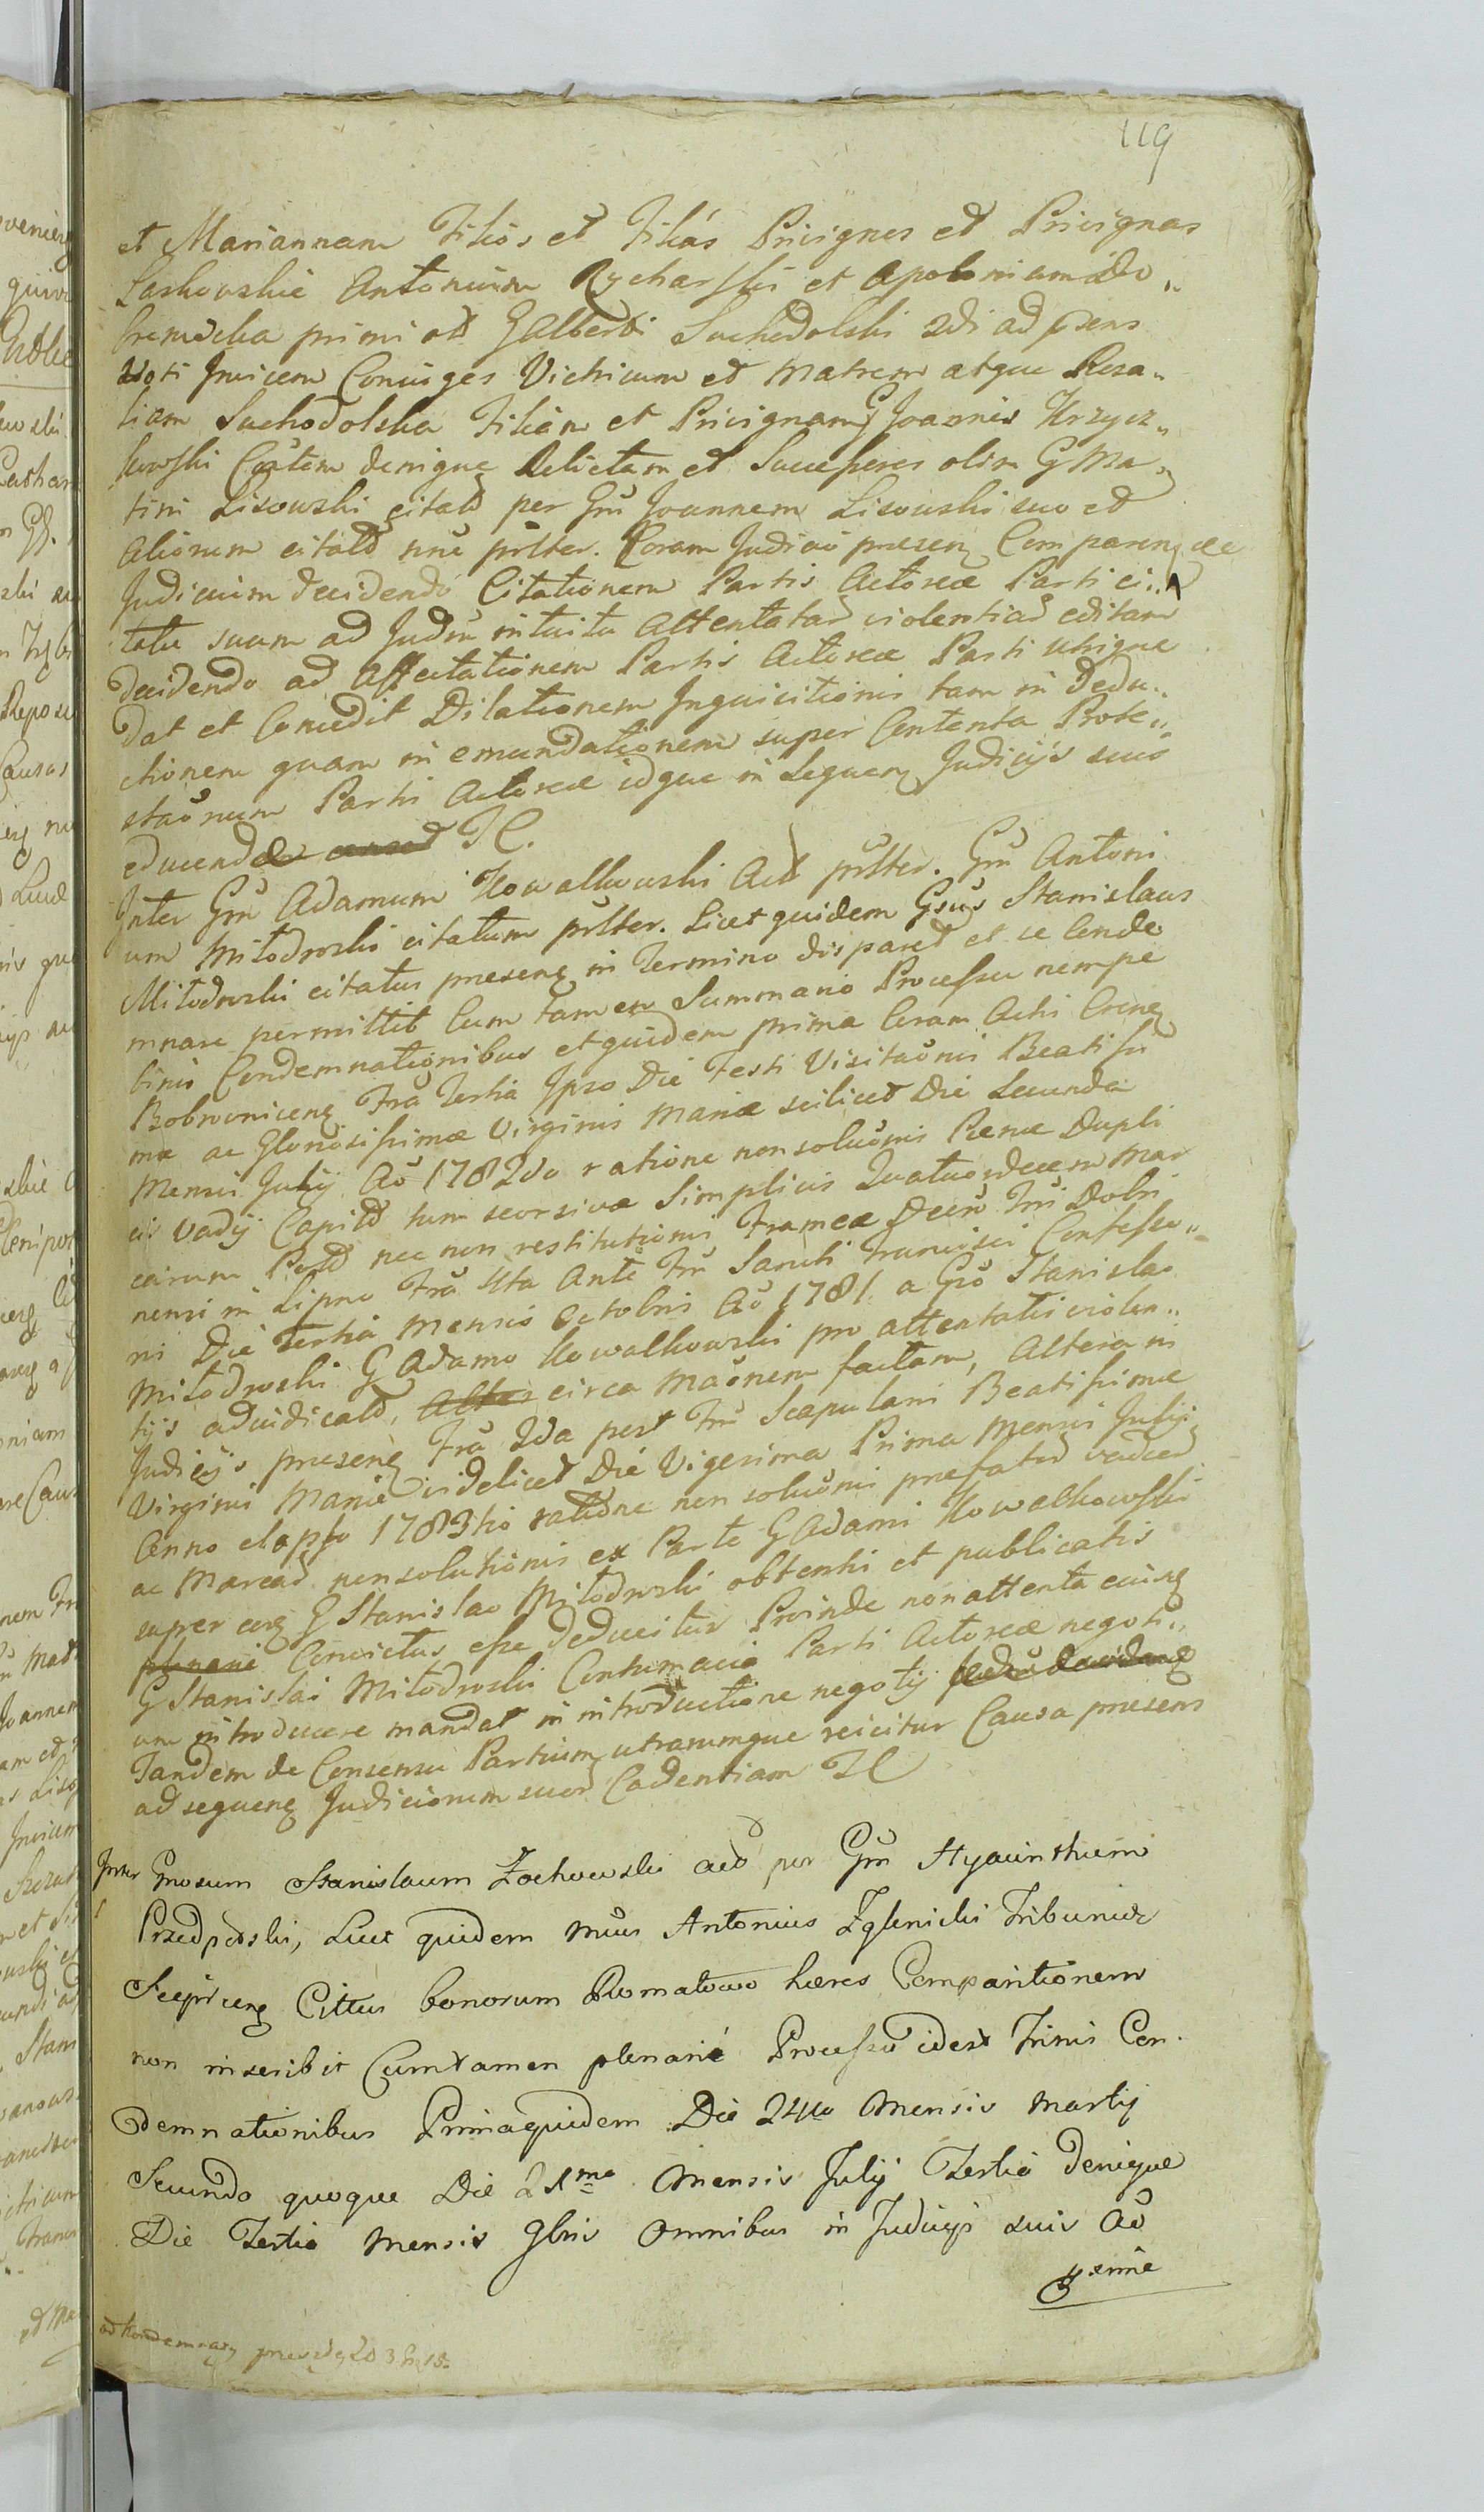 119
et Mariannam Filios et Filias Privignos et Privignas
Laskowskie Antonium Rycharski et Apoloniam Do„
primi ad G Alberti Suchodolski 2di ad praes
Voti Invicem Coniuges Vitricum et Matrem atque Rosa„
liam Suchodolska Filiam et Privignam G Joannis Krzycz„
kowski Cötem denique Relictam et Successores olim G Mar„
tini Lisowski citatd per Gm̃ Joannem Lisowski suo et
Aliorum citatd nn̄e pn̄lter. Coram Judicio presenȝ Comparenȝ ac
Judicium decidendo Citationem Partis Actoreæ Parti ci„
tatæ suam ad Judm̃ intuitu Attentatar violentiar editam
decidendo ad Affectationem Partis Actoreæ Parti utrique
dat et Concedit Dilationem Inquisitionis tam in dedu„
ctionem quam in emundationem super Contenta Prote„
staõnum Parti Actoreæ idque in Sequenȝ Judicijs suis
educendæ JC.
Inter Gm̃ Adamum Kowalkowski Act pn̄lter. Gm̃ Antoni
um Miłodroski citatum pn̄lter. Licet quidem Gsus Stanislaus
Miłodroski citatus presenȝ in Termino disparet et se Conde
mnare permittit Cum tamen Summario Processu nempe
binis Condemnationibus et quidem prima Coram Actis Crenȝ
Bobrovnicenȝ Fra Tertia Ipso Die Festi Visitaõnis Beatissi
mæ ac Gloriosissimæ Virginis Mariæ scilicet Die Secunda
Mensis Julij Aõ 1782do ratione non soluõnis Pænæ Dupli
cis Vadij Capitd tum seorsivæ Simplicis Quatuordecem Mar
carum Pold nec non restitutionis Frameæ Decrõ Tri Dobri
nensi in Lipno Fra 4ta Ante Fm̃ Sancti Francisci Confesso„
ris Die Tertia Mensis Octobris Aõ 1781 a Gso Stanislao
Miłodroski G Adamo Kowalkowski pro attentatis violen„
tijs adiudicatd, Alter circa Maõnem factam, Altera in
Judicijs presenȝ Fra 2da post Fm̃ Scapularis Beatissimæ
Virginis Mariæ videlicet Die Vigesima Prima Mensis Julij
Anno elapso 1783tio ratione non soluõnis prefatd
ac Marcar non solutionis ex Parte G Adami Kowalkowski
super eoȝ G Stanislao Miłodroski obtenti et publicatis
plenarie Convictus esse deducitur Proinde non attenta euisȝ
G Stanislai Miłodroski Contumacia Parti Actoreæ negoti„
um introducere mandat in introductione negotij
Tandem de Consensu Partium utrarumque reicitur Causa presens
ad sequenȝ Judiciorum suor Cadentiam JC
Inter Gnosum Stanislaum Zochowski act per Gm̃ Hyacinthum
Przedpełski, Licet quidem Mm̃us Antonius Zglenicki Tribunide
Citus bonorum Romatowo hæres Comparitionem
non inscribit Cumtamen plenarie Processu idest Trinis Con.
demnationibus Prima quidem Die 24ta Mensis Martij
Secundo quoque Die 21ma Mensis Julij Tertia denique
Die Tertia Mensis 9bris omnibus in Judicijs suis Aõ